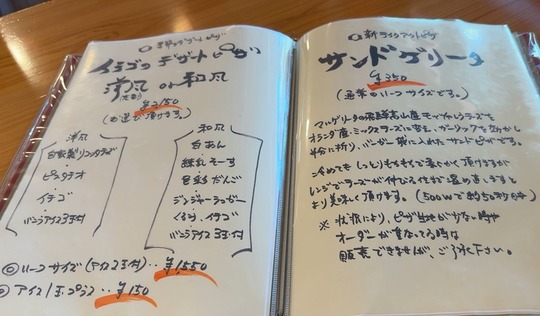 イチゴの デザートピザ
洋風 or 和風
¥2150
(お選び頂けます。)
洋風
自家製リコッタチーズ
ピスタチオ
イチゴ
バニラアイス3玉付
和風
白あん
練乳そーす
三色だんご
ジンジャーシュガー
くるみ、イチゴ
バニラアイス3玉付
◎ハーフサイズ(アイス2玉付)‥¥1550
◎アイス1玉プラス‥¥150
新テイクアウトピザ
サンドゲリータ
¥350
(通常のハーフサイズです。)
マルゲリータの飛騨高山産モッツァレラチーズを
オランダ産ミックスチーズに変え、ガーリックを効かし
半分に折り、バーガー袋に入れたサンドピザです。
冷めても しっとりもちもちで柔らかく頂けますが
レンジでチーズが伸びる位まで温め直しますと
より美味しく頂けます。(500Wで約50秒程)
※ 状況により、ピザ生地が少ない時や
オーダーが重なってる時は
販売できませんが、ご了承下さい。